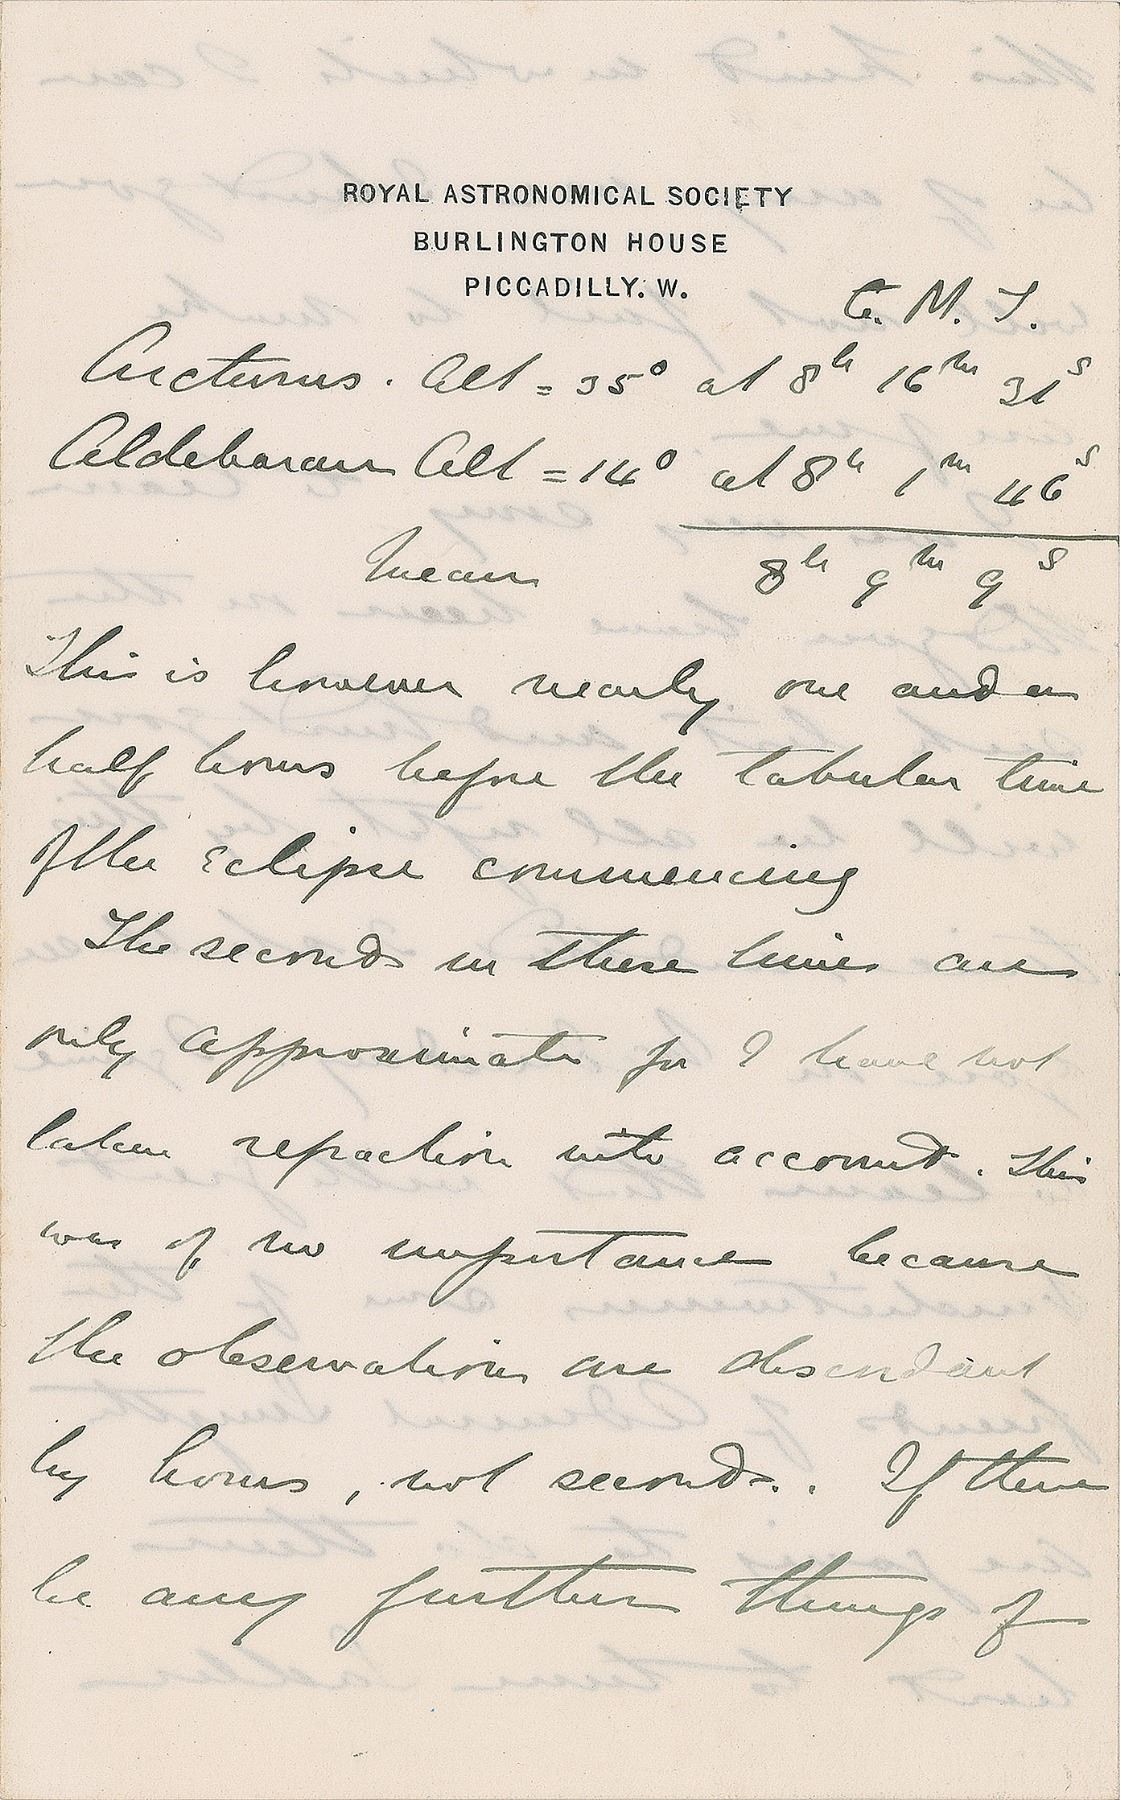 ROYAL ASTRONOMICAL SOCIETY
BURLINGTON HOUSE
PICCADILLY. W.
G. M. T.
Arcturus. Alt = 35° at 8h 16m 31s
Aldebaran Alt = 14° at 8h 1m 46s
Mean 8h 9m 9s
This is however nearly one and a
half hours before the tabular time
of the Eclipse commencing
The seconds in these times are
only approximate for I have not
taken refraction into account. This
was of no importance because
the observations are discordant
by hours, not seconds. If there
be any further things of